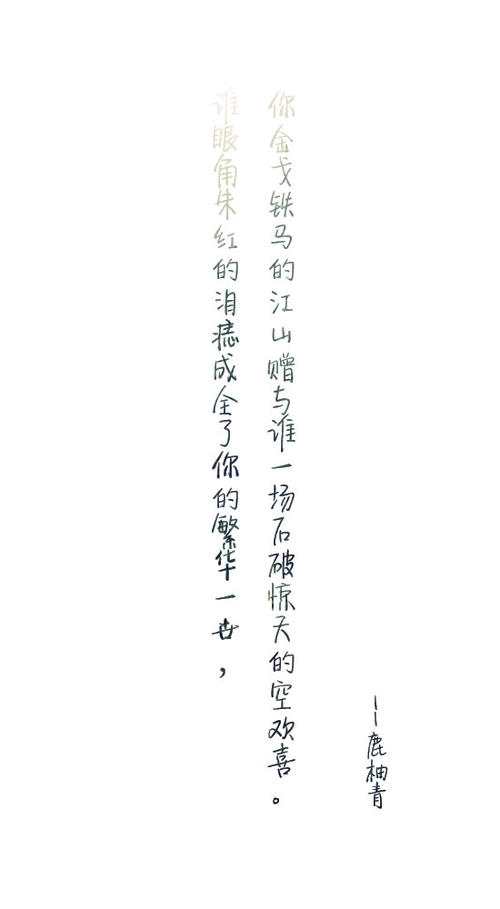 谁眼角朱红的泪痣成全了你的繁华一世，
你金戈铁马的江山赠与谁一场石破惊天的空欢喜。
——鹿柚青